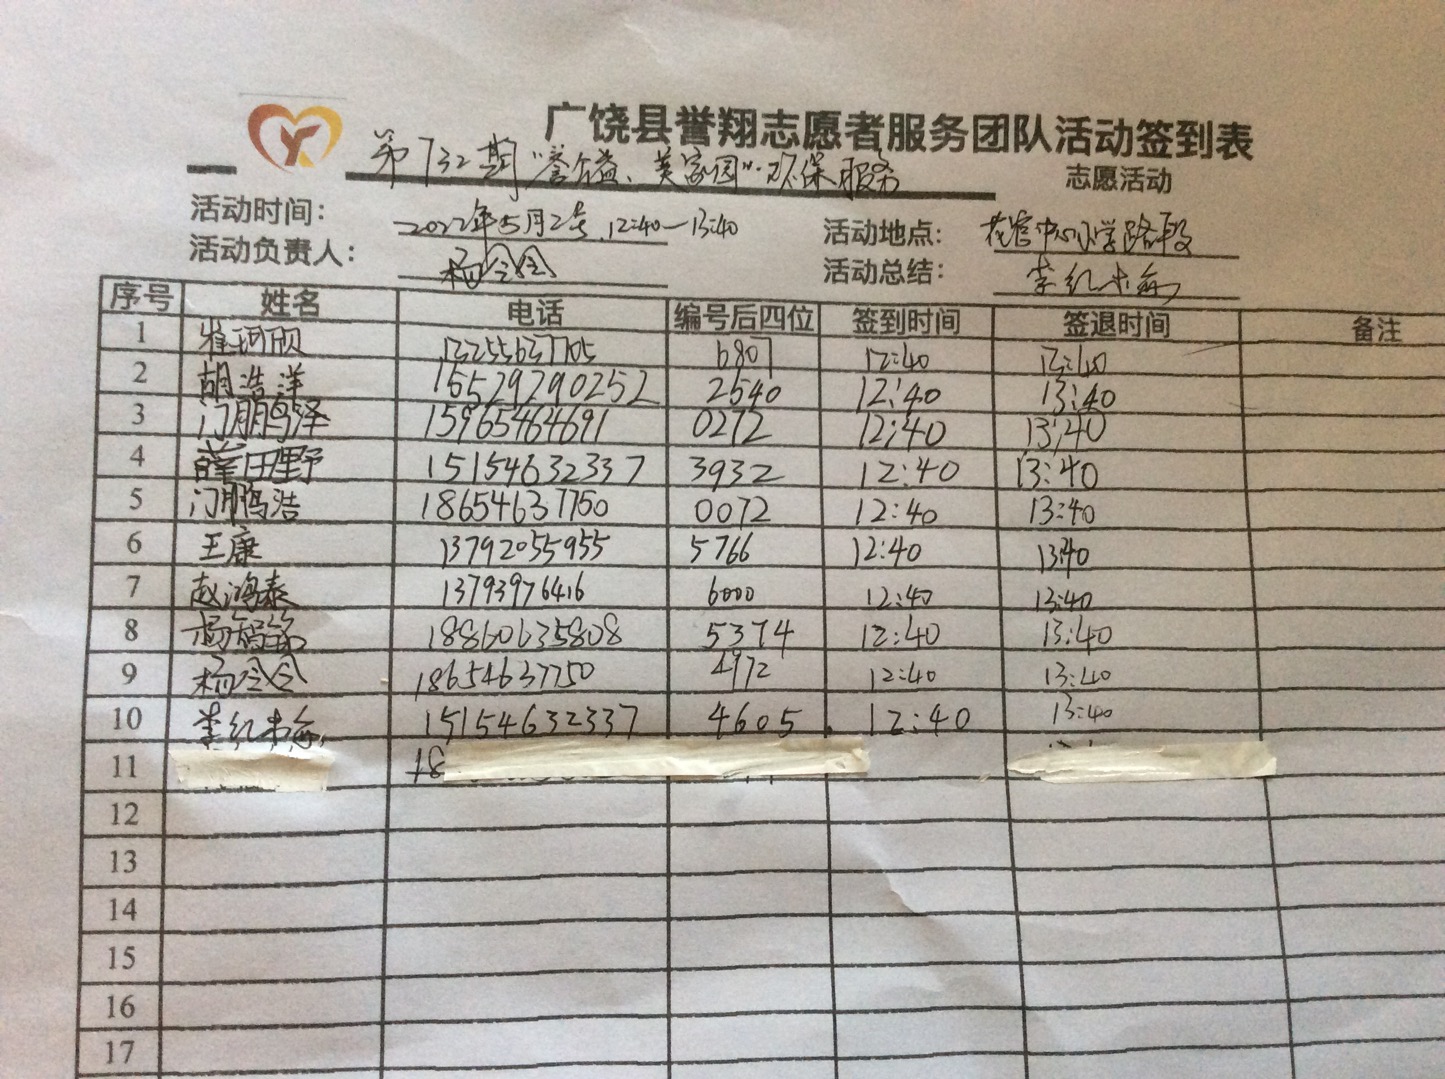 广饶县誉翔志愿者服务团队活动签到表
第732期"誉益、美家园"环保服务 志愿活动
活动时间: 2022年5月2号 12:40—13:40 活动地点: 花官中心小学路段
活动负责人: 杨令令 活动总结: 李红梅
序号 姓名 电话 编号后四位 签到时间 签退时间 备注
1 崔珂欣 13255637705 6807 12:40 13:40
2 胡浩洋 15529290252 2540 12:40 13:40
3 门鹏泽 15965464691 0272 12:40 13:40
4 薛田野 15154632337 3932 12:40 13:40
5 门鹏浩 18654637750 0072 12:40 13:40
6 王康 13792055955 5766 12:40 13:40
7 赵鸿泰 13793976416 6000 12:40 13:40
8 杨智 18860635808 5374 12:40 13:40
9 杨令令 18654637750 4972 12:40 13:40
10 李红梅 15154632337 4605 12:40 13:40
11 18
12
13
14
15
16
17